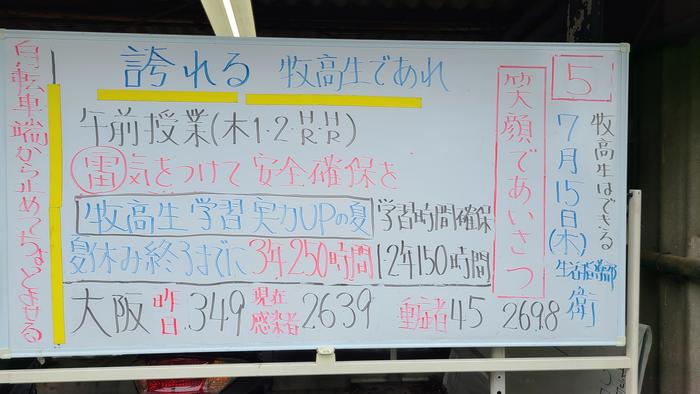 誇れる 牧高生であれ
5
牧高生はできる
7月15日(木)
生活指導部
衛
笑顔であいさつ
午前授業(木1・2・HR・HR)
雷気をつけて 安全確保を
牧高生 学習 実力UPの夏 学習時間確保
夏休み終るまでに 3年250時間 1・2年150時間
大阪 昨日 349 現在感染者 2639 重症者 45 2698
自転車端から止めて